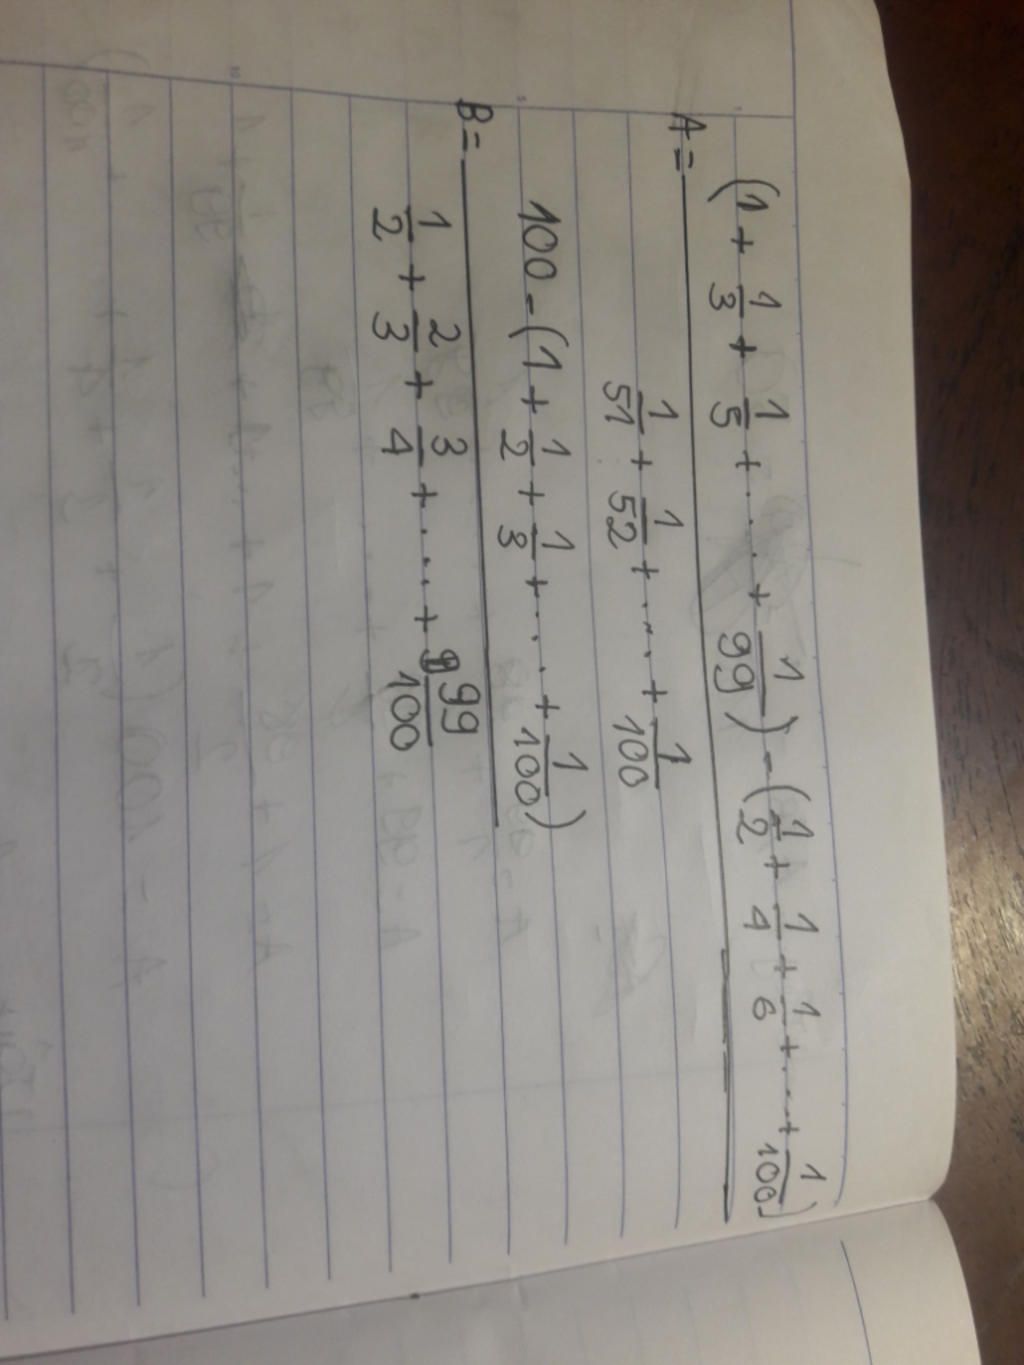 A = (1 + 1/3 + 1/5 + .... + 1/99) - (1/2 + 1/4 + 1/6 + .... + 1/100)
1/51 + 1/52 + .... + 1/100
B = 100 - (1 + 1/2 + 1/3 + .... + 1/100)
1/2 + 2/3 + 3/4 + .... + 99/100